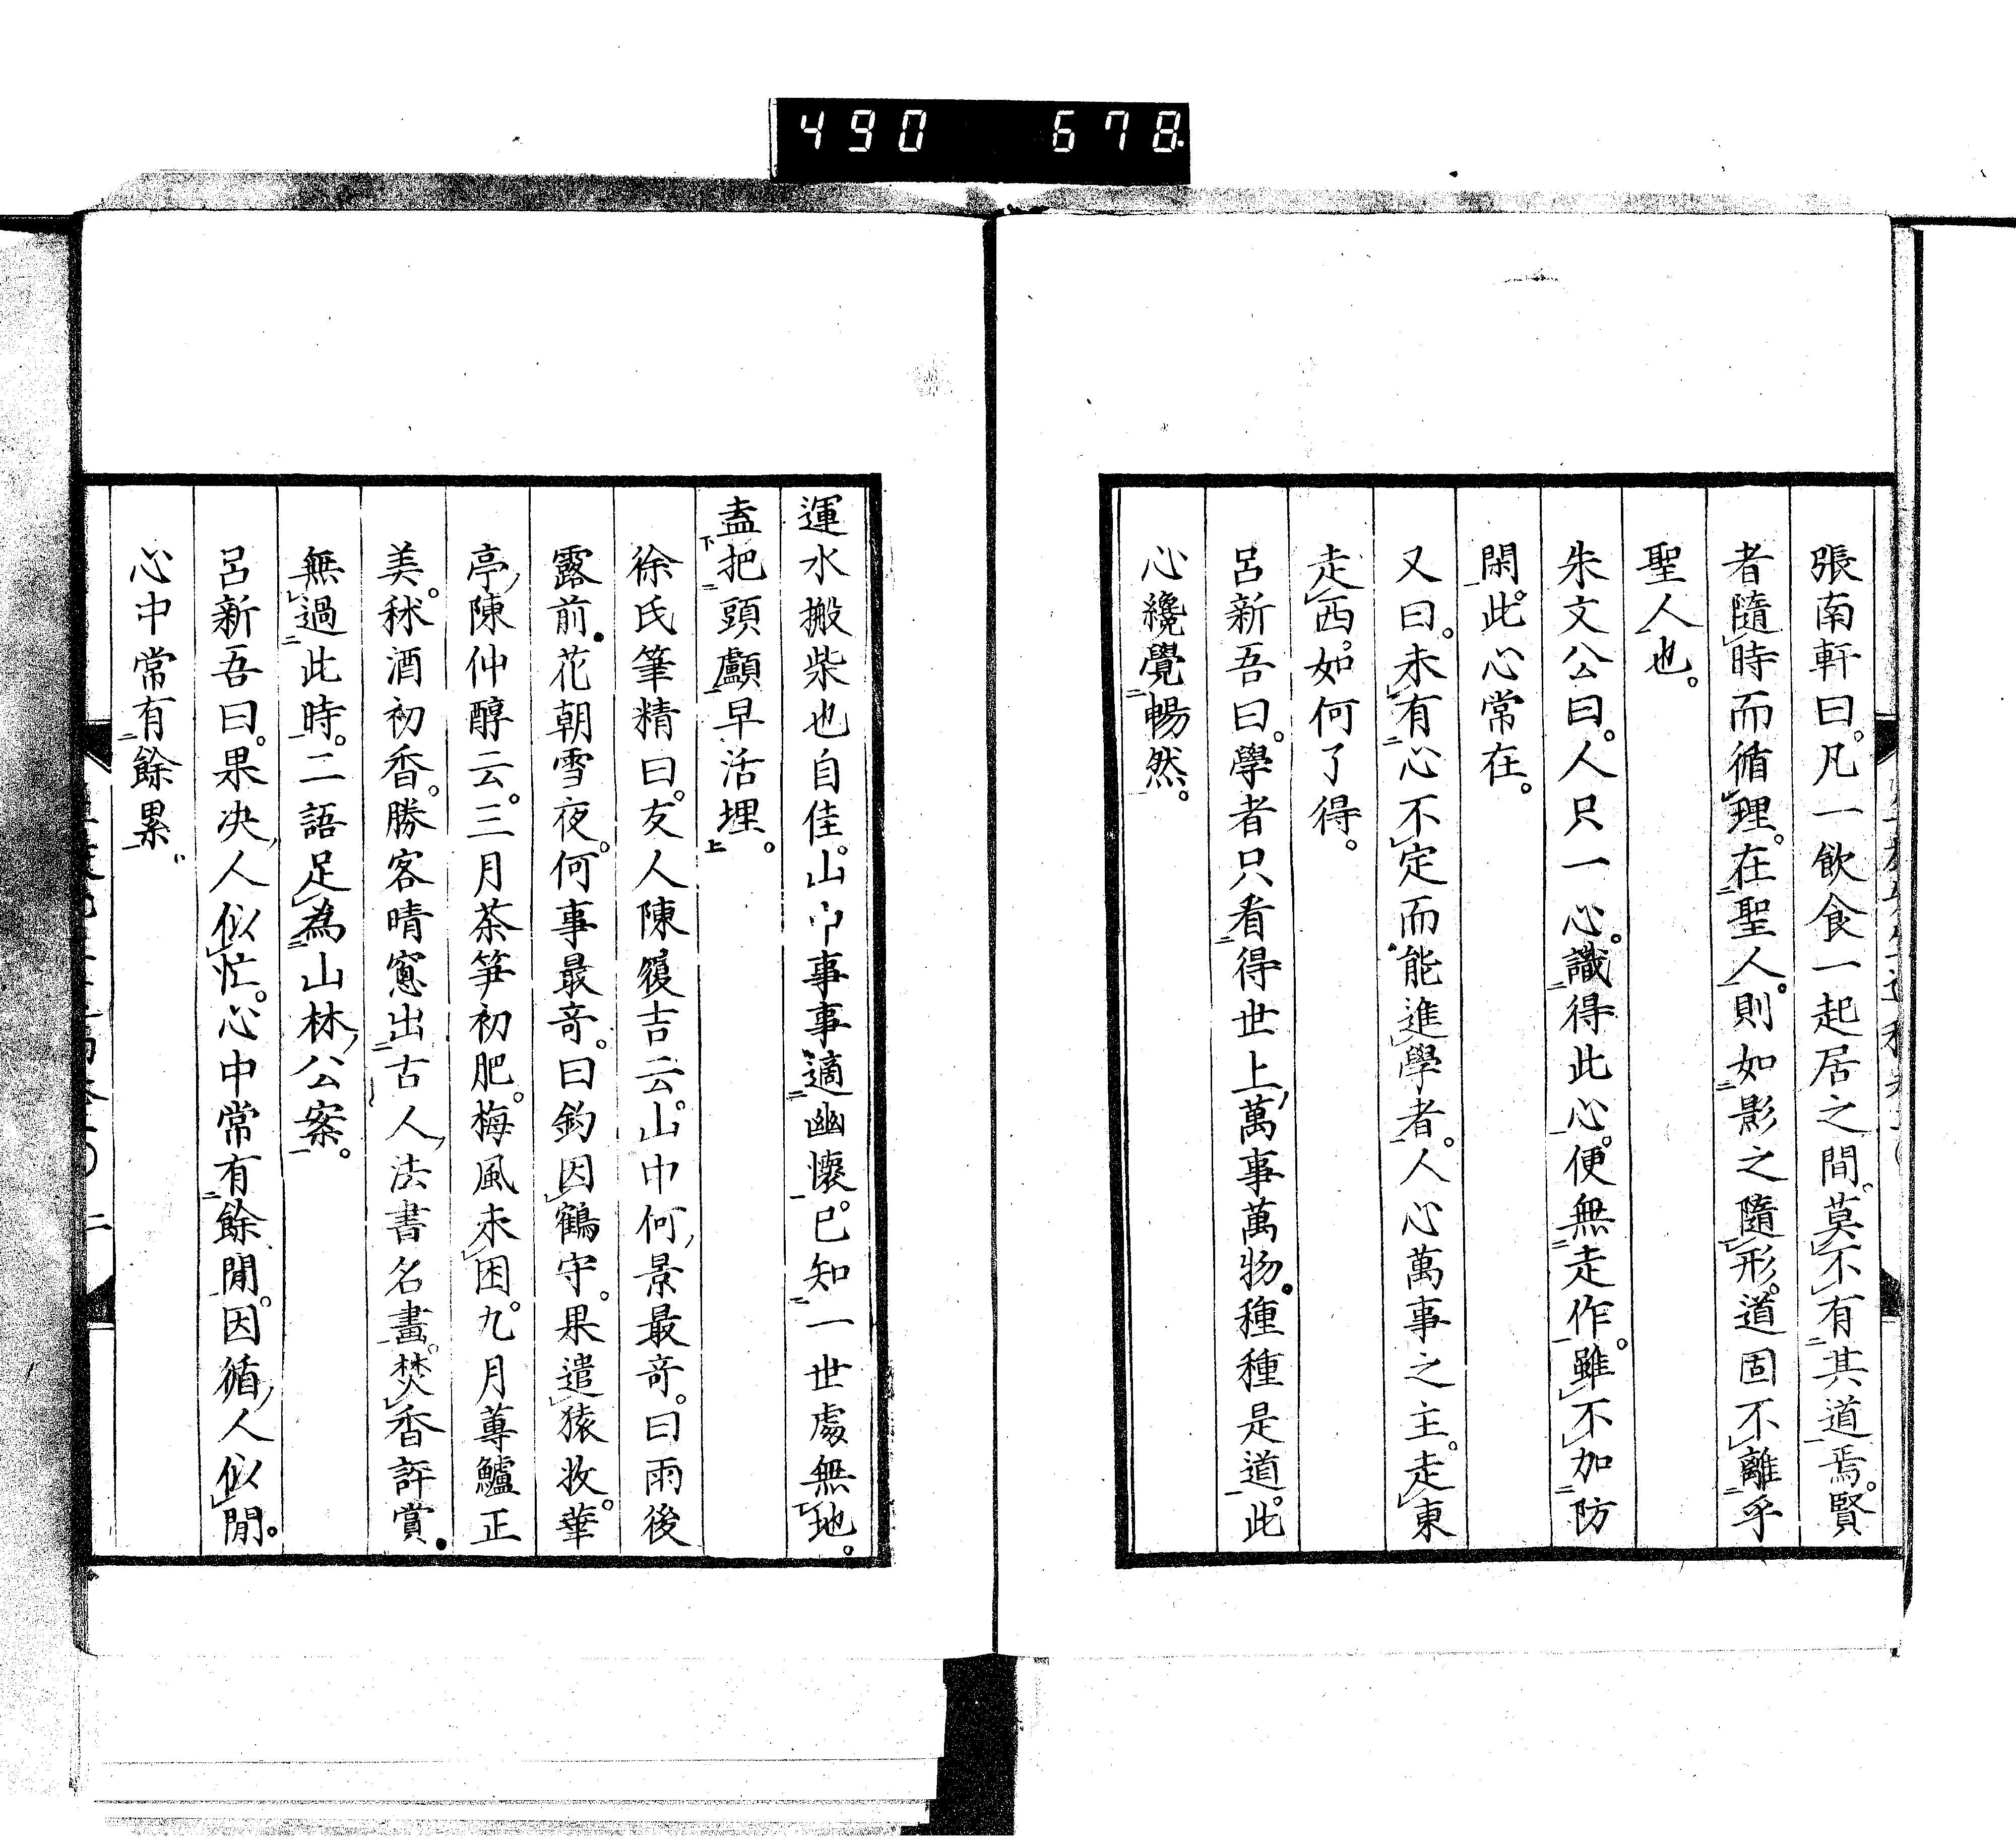 490 678
張南軒曰。凡一飲食一起居之間。莫不有其道焉。賢
者隨時而循理。在聖人。則如影之隨形。道固不離乎
聖人也。
朱文公曰。人只一心。識得此心。便無走作。雖不加防
閑。此心常在。
又曰。未有心不定而能進學者。人心萬事之主。走東
走西。如何了得。
呂新吾曰。學者只看得世上萬事萬物。種種是道。此
心纔覺暢然。
運水搬柴也自佳。山中事事適幽懷。已知一世處無地。
盍把頭顱早活埋。
徐氏筆精曰。友人陳履吉云。山中何景最奇。曰雨後
露前。花朝雪夜。何事最奇。曰釣因鶴守。果遣猿收。華
亭陳仲醇云。三月茶笋初肥。梅風未困。九月蓴鱸正
美。秫酒初香。勝客晴窻出古人法書名畫。焚香評賞。
無過此時。二語足為山林公案。
呂新吾曰。果决人似忙。心中常有餘閒。因循人似閒。
心中常有餘累。